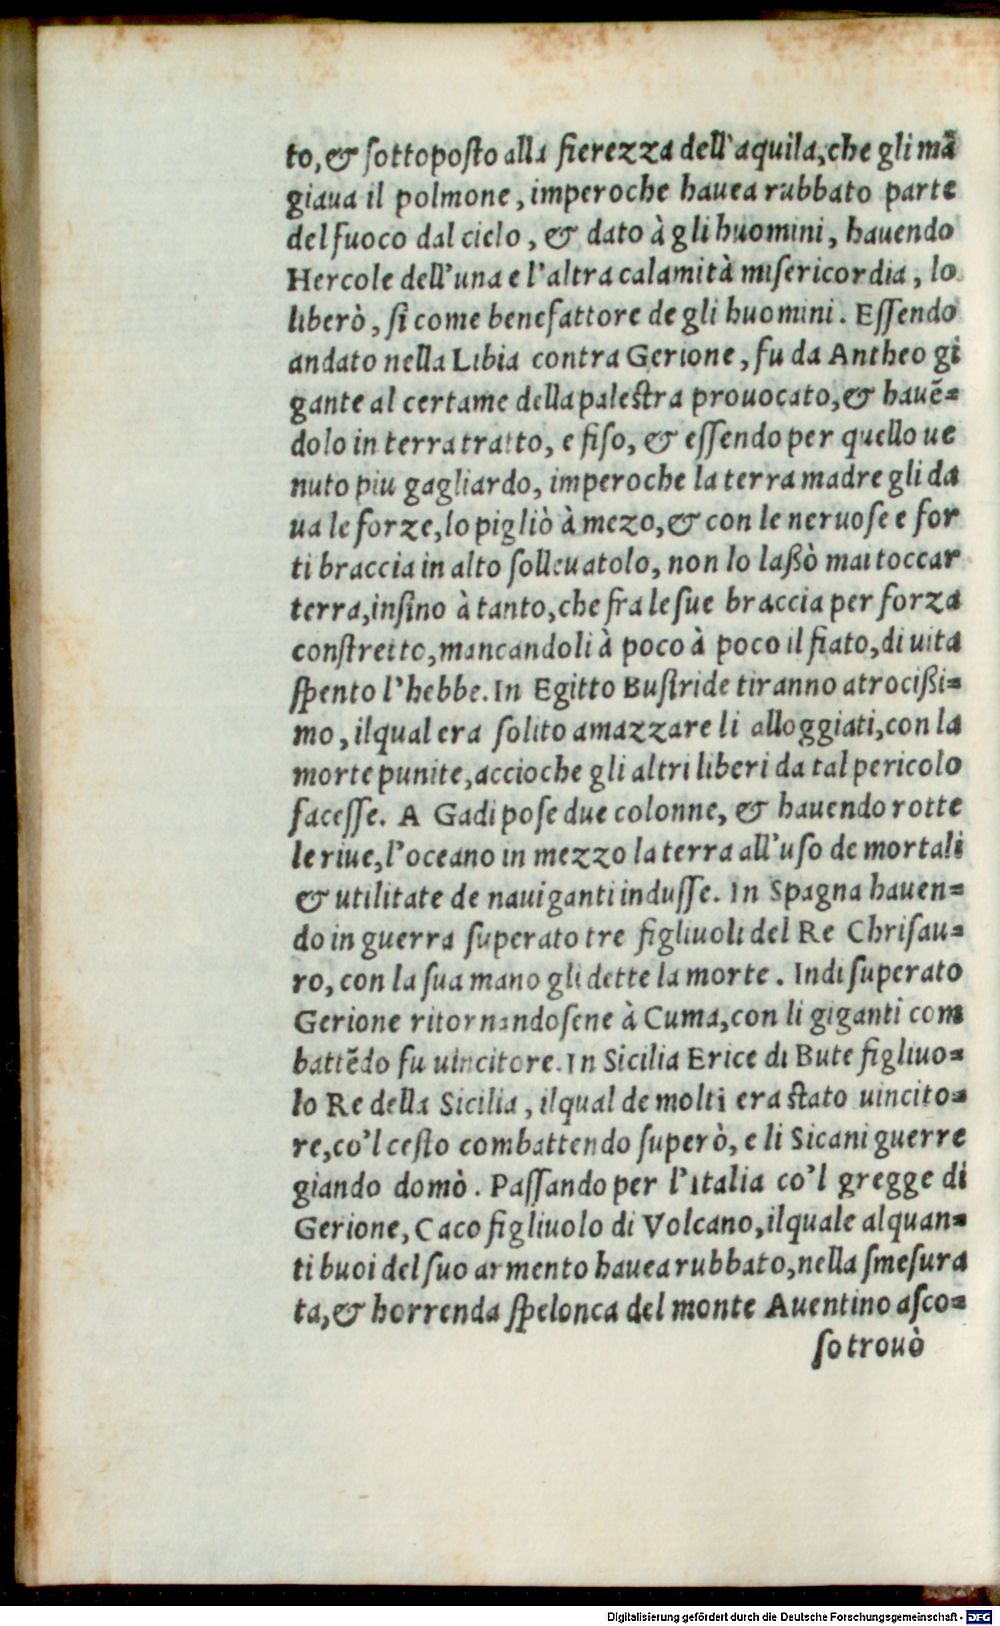 to, & ſottopoſto alla fierezza dell'aquila, che gli mã
giaua il polmone, imperoche hauea rubbato parte
del fuoco dal cielo, & dato à gli huomini, hauendo
Hercole dell'una e l'altra calamità miſericordia, lo
liberò, ſi come benefattore de gli huomini. Eſſendo
andato nella Libia contra Gerione, fu da Antheo gi
gante al certame della palestra prouocato, & hauẽ=
dolo in terra tratto, e fiſo, & eſſendo per quello ue
nuto piu gagliardo, imperoche la terra madre gli da
ua le forze, lo pigliò à mezo, & con le neruoſe e for
ti braccia in alto ſolleuatolo, non lo laßò mai toccar
terra, inſino à tanto, che fra le ſue braccia per forza
conſtretto, mancandoli à poco à poco il fiato, di uita
ſpento l'hebbe. In Egitto Buſiride tiranno atrocißi=
mo, ilqual era ſolito amazzare li alloggiati, con la
morte punite, accioche gli altri liberi da tal pericolo
faceſſe. A Gadi poſe due colonne, & hauendo rotte
le riue, l'oceano in mezzo la terra all'uſo de mortali
& utilitate de nauiganti induſſe. In Spagna hauen=
do in guerra ſuperato tre figliuoli del Re Chriſau=
ro, con la ſua mano gli dette la morte. Indi ſuperato
Gerione ritornandoſene à Cuma, con li giganti com
battẽdo fu uincitore. In Sicilia Erice di Bute figliuo=
lo Re della Sicilia, ilqual de molti era stato uincito=
re, co'l ceſto combattendo ſuperò, e li Sicani guerre
giando domò. Paſſando per l'Italia co'l gregge di
Gerione, Caco figliuolo di Volcano, ilquale alquan=
ti buoi del ſuo armento hauea rubbato, nella ſmeſura
ta, & horrenda ſpelonca del monte Auentino aſco=
ſo trouò
Digitalisierung gefördert durch die Deutsche Forschungsgemeinschaft - DFG